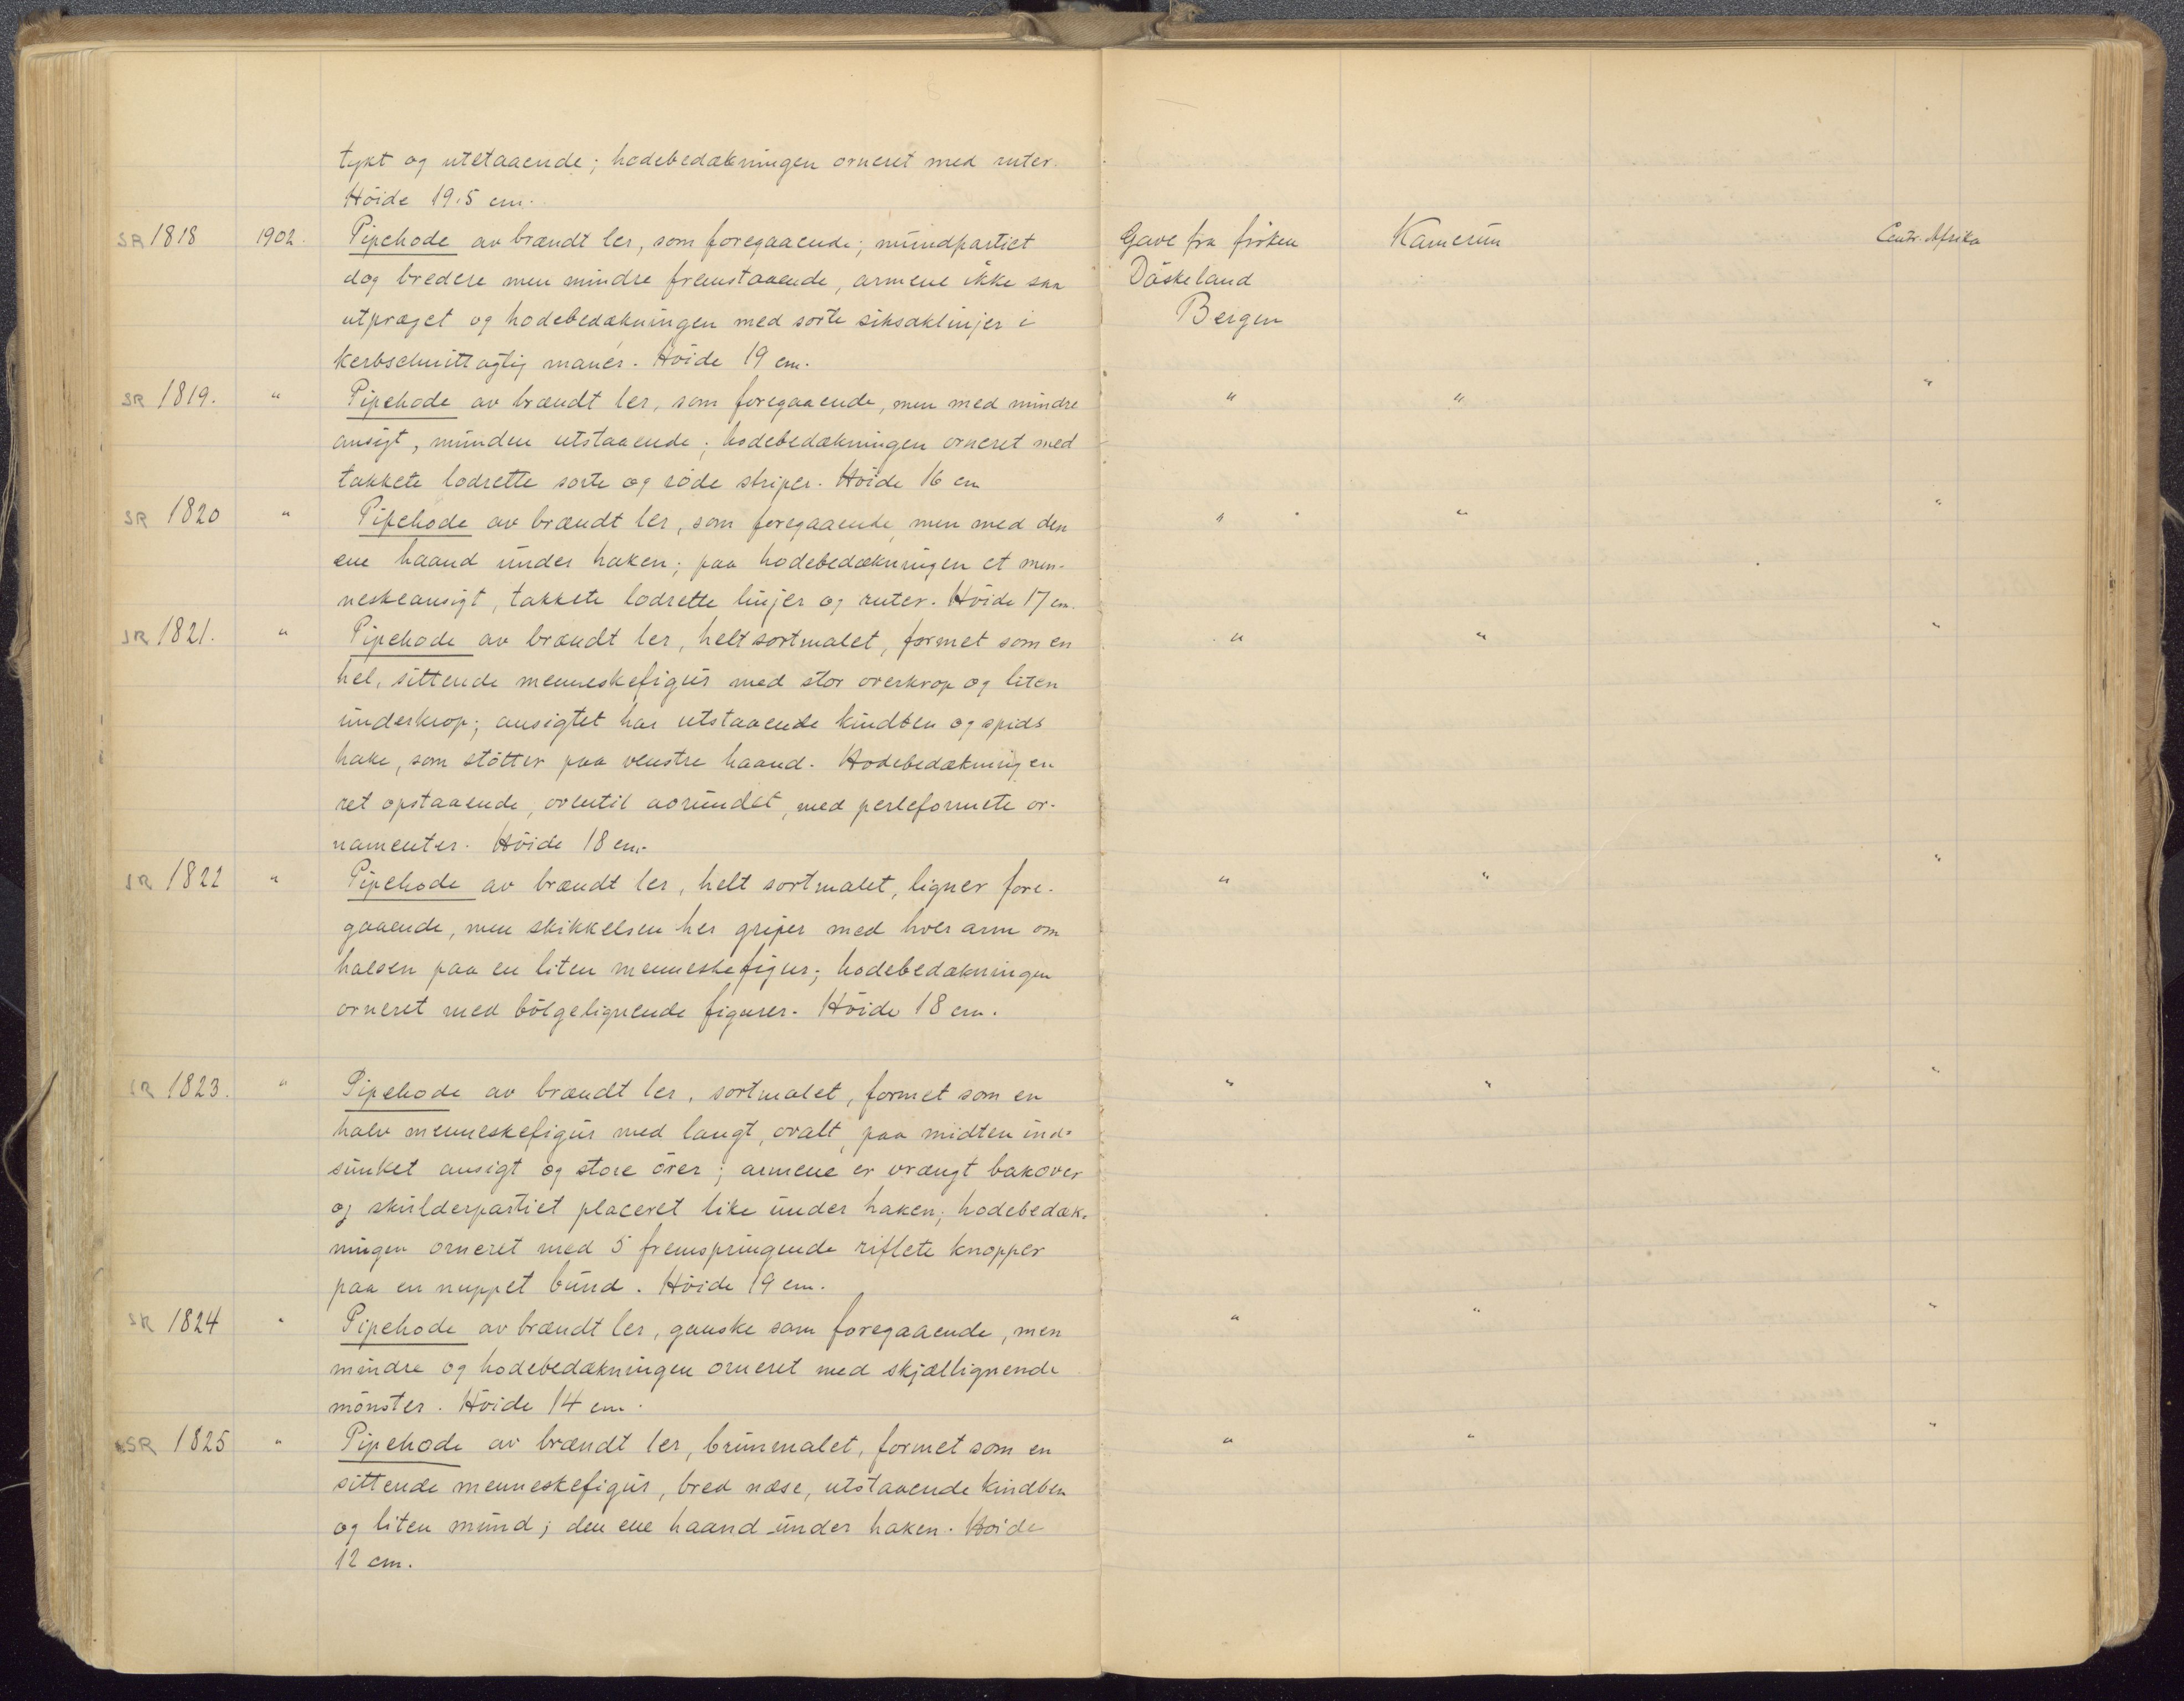 tykt og utstaaende; hodebedækningen orneret med ruter.
Höide 19.5 cm.
SR 1818 1902. Pipehode av brændt ler, som foregaaende; mundpartiet Gave fra fröken Kamerun Centr. Afrika
dog bredere men mindre fremstaaende, armene ikke saa Döskeland
utpræget og hodebedækningen med sorte siksaklinjer i Bergen
kerbschnittagtig manér. Höide 19 cm.
SR 1819. " Pipehode av brændt ler, som foregaaende, men med mindre " " "
ansigt, munden utstaaende; hodebedækningen orneret med
takkete lodrette sorte og röde striper. Höide 16 cm
SR 1820 " Pipehode av brændt ler, som foregaaende, men med den " " "
ene haand under haken; paa hodebedækningen et men-
neskeansigt, takkete lodrette linjer og ruter. Höide 17 cm.
SR 1821. " Pipehode av brændt ler, helt sortmalet, formet som en " " "
hel, sittende menneskefigur med stor overkrop og liten
underkrop; ansigtet har utstaaende kindben og spids
hake, som stötter paa venstre haand. Hodebedækningen
ret opstaaende, oventil avrundet, med perleformete or-
namenter. Höide 18 cm.
SR 1822 " Pipehode av brændt ler, helt sortmalet, ligner fore- " " "
gaaende, men skikkelsen her griper med hver arm om
halsen paa en liten menneskefigur; hodebedækningen
orneret med bölgelignende figurer. Höide 18 cm.
SR 1823. " Pipehode av brændt ler, sortmalet, formet som en " " "
halv menneskefigur med langt, ovalt, paa midten ind-
sunket ansigt og store örer; armene er vrængt bakover
og skulderpartiet placeret like under haken; hodebedæk-
ningen orneret med 5 fremspringende riflete knopper
paa en nuppet bund. Höide 19 cm.
SR 1824 " Pipehode av brændt ler, ganske som foregaaende, men " " "
mindre og hodebedækningen orneret med skjællignende
mönster. Höide 14 cm.
SR 1825 " Pipehode av brændt ler, brunmalet, formet som en " " "
sittende menneskefigur, bred næse, utstaaende kindben
og liten mund; den ene haand under haken. Höide
12 cm.